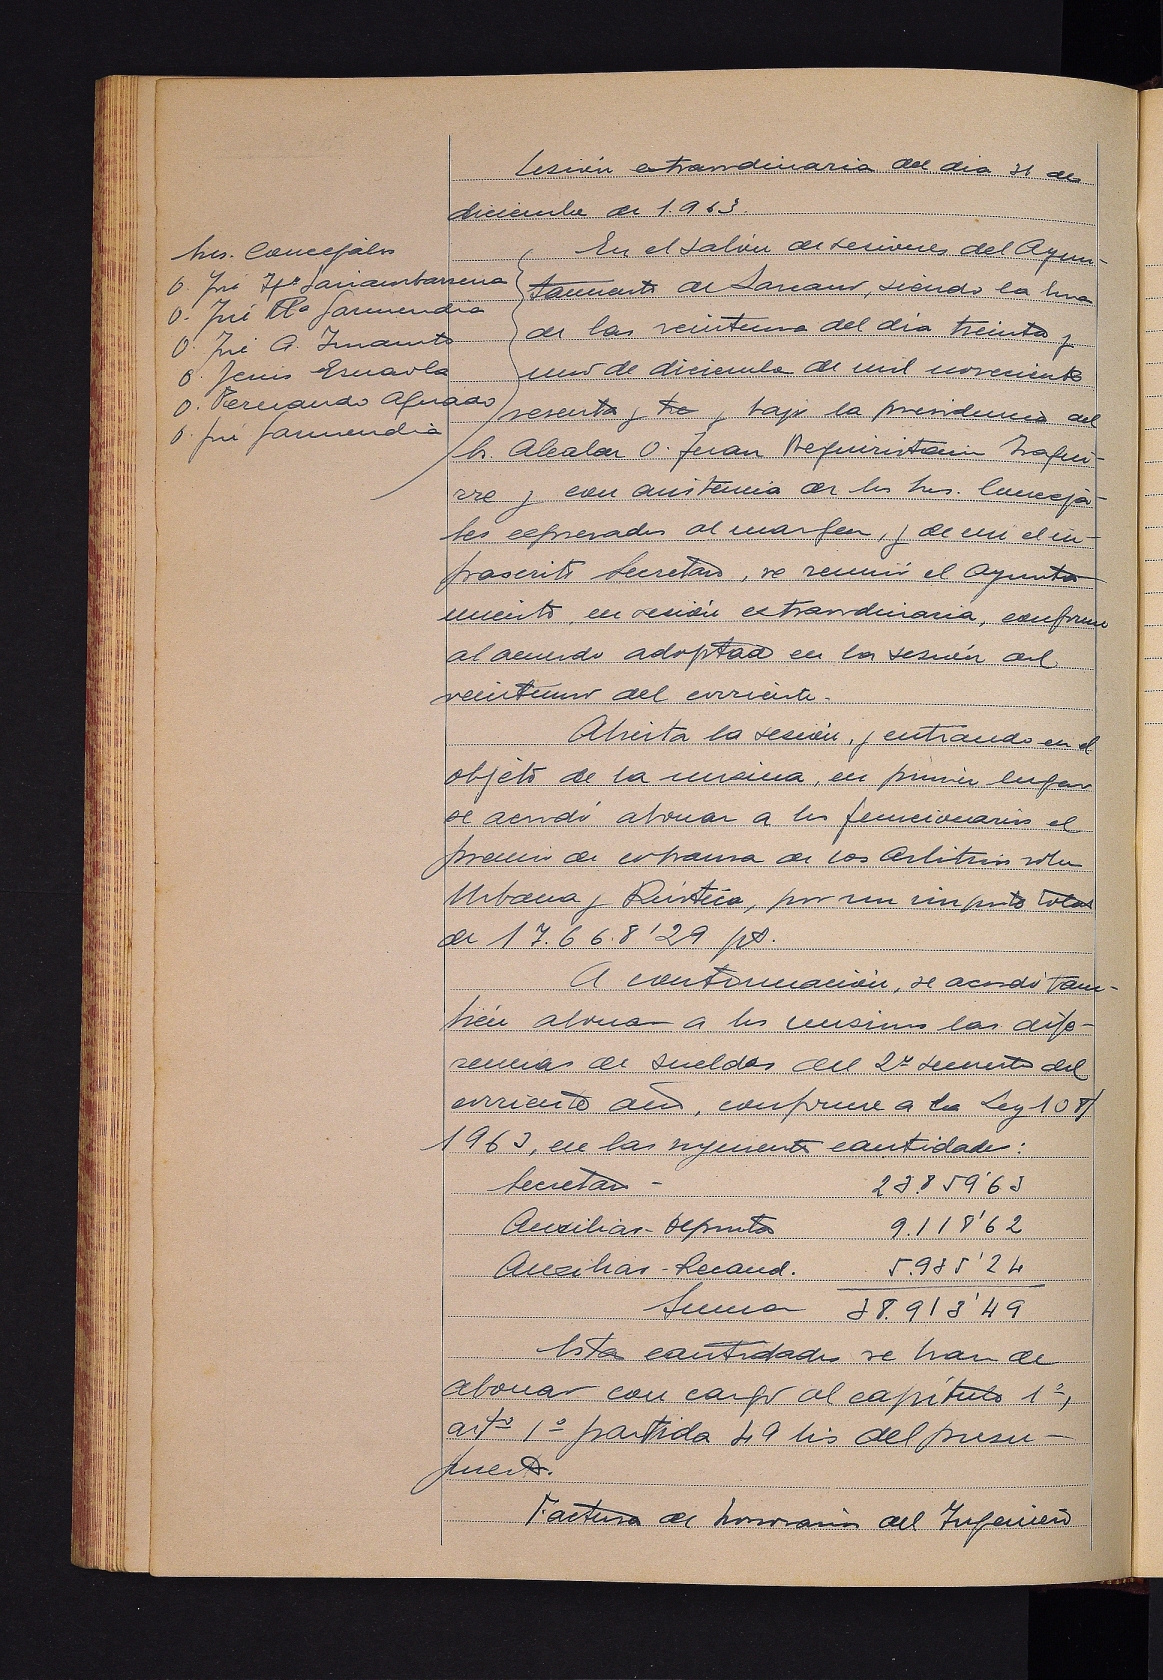 Sesión extraordinaria del dia 31 de
diciembre de 1963.
Sres. Concejales
D. José Mª Garimbarrena
D. José Mª Garmendia
D. José A.
D. Jesus Esnaola
D. Fernando Aguado
D. José Garmendia
En el salón de sesiones del Ayun-
tamiento de Lazcano, siendo la hora
de las veintiuna del día treinta y
uno de diciembre de mil novecientos
sesenta y tres y bajo la presidencia del
Sr. Alcalde D. Juan Aseguinolaza Izagui-
rre y con asistencia de los Sres. Conceja-
les expresados al margen, y de mi el in-
frascrito Secretario, se reunió el Ayunta
miento, en sesión extraordinaria, conforme
al acuerdo adoptado en la sesión del
veintiuno del corriente.
Abierta la sesión, y entrando en el
objeto de la misma, en primer lugar
se acordó abonar a los funcionarios el
premio de cobranza de los Arbitrios sobre
Urbana y Rústica, por un importe total
de 17.668'29 pts.
A continuación, se acordó tam-
bién abonar a los mismos las dife-
rencias de sueldos del 2º semestre del
corriente año, conforme a la Ley 108/
1963, en las siguientes cantidades:
Secretario - 23.859'63
Auxiliar-Deposito 9.118'62
Auxiliar-Recaud. 5.935'24
Suma 38.913'49
Estas cantidades se han de
abonar con cargo al capítulo 1º,
artº 1º partida 49 bis del presu-
puesto.
Factura de honorarios del Ingeniero